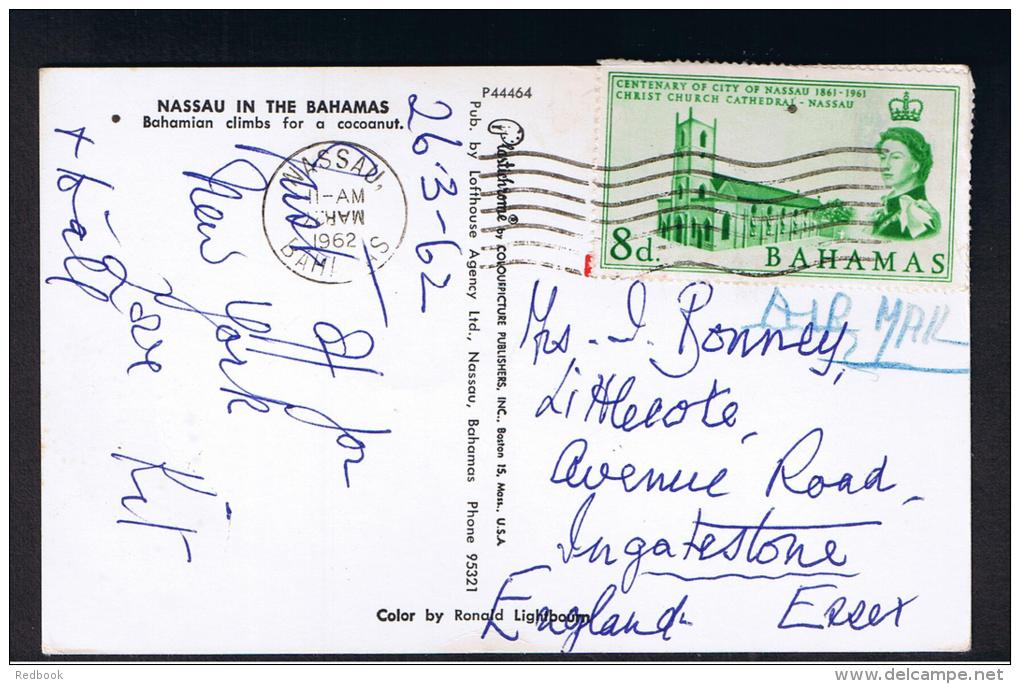 NASSAU IN THE BAHAMAS
Bahamian climbs for a cocoanut.
26·3-62
Just off for
New York
Kit
P44464
Plastichrome® by COLOURPICTURE PUBLISHERS, INC., Boston 15, Mass., U.S.A
Pub. by Lofthouse Agency Ltd., Nassau, Bahamas Phone 95321
Color by Ronald Lightbourn
NASSAU,
11-AM
MAR
1962
BAHAMAS
CENTENARY OF CITY OF NASSAU 1861-1961
CHRIST CHURCH CATHEDRAL - NASSAU
8d.
BAHAMAS
AIR MAIL
Mrs. I. Bonney,
Littlecote,
Avenue Road,
Ingatestone
England Essex
Redbook
www.delcampe.net